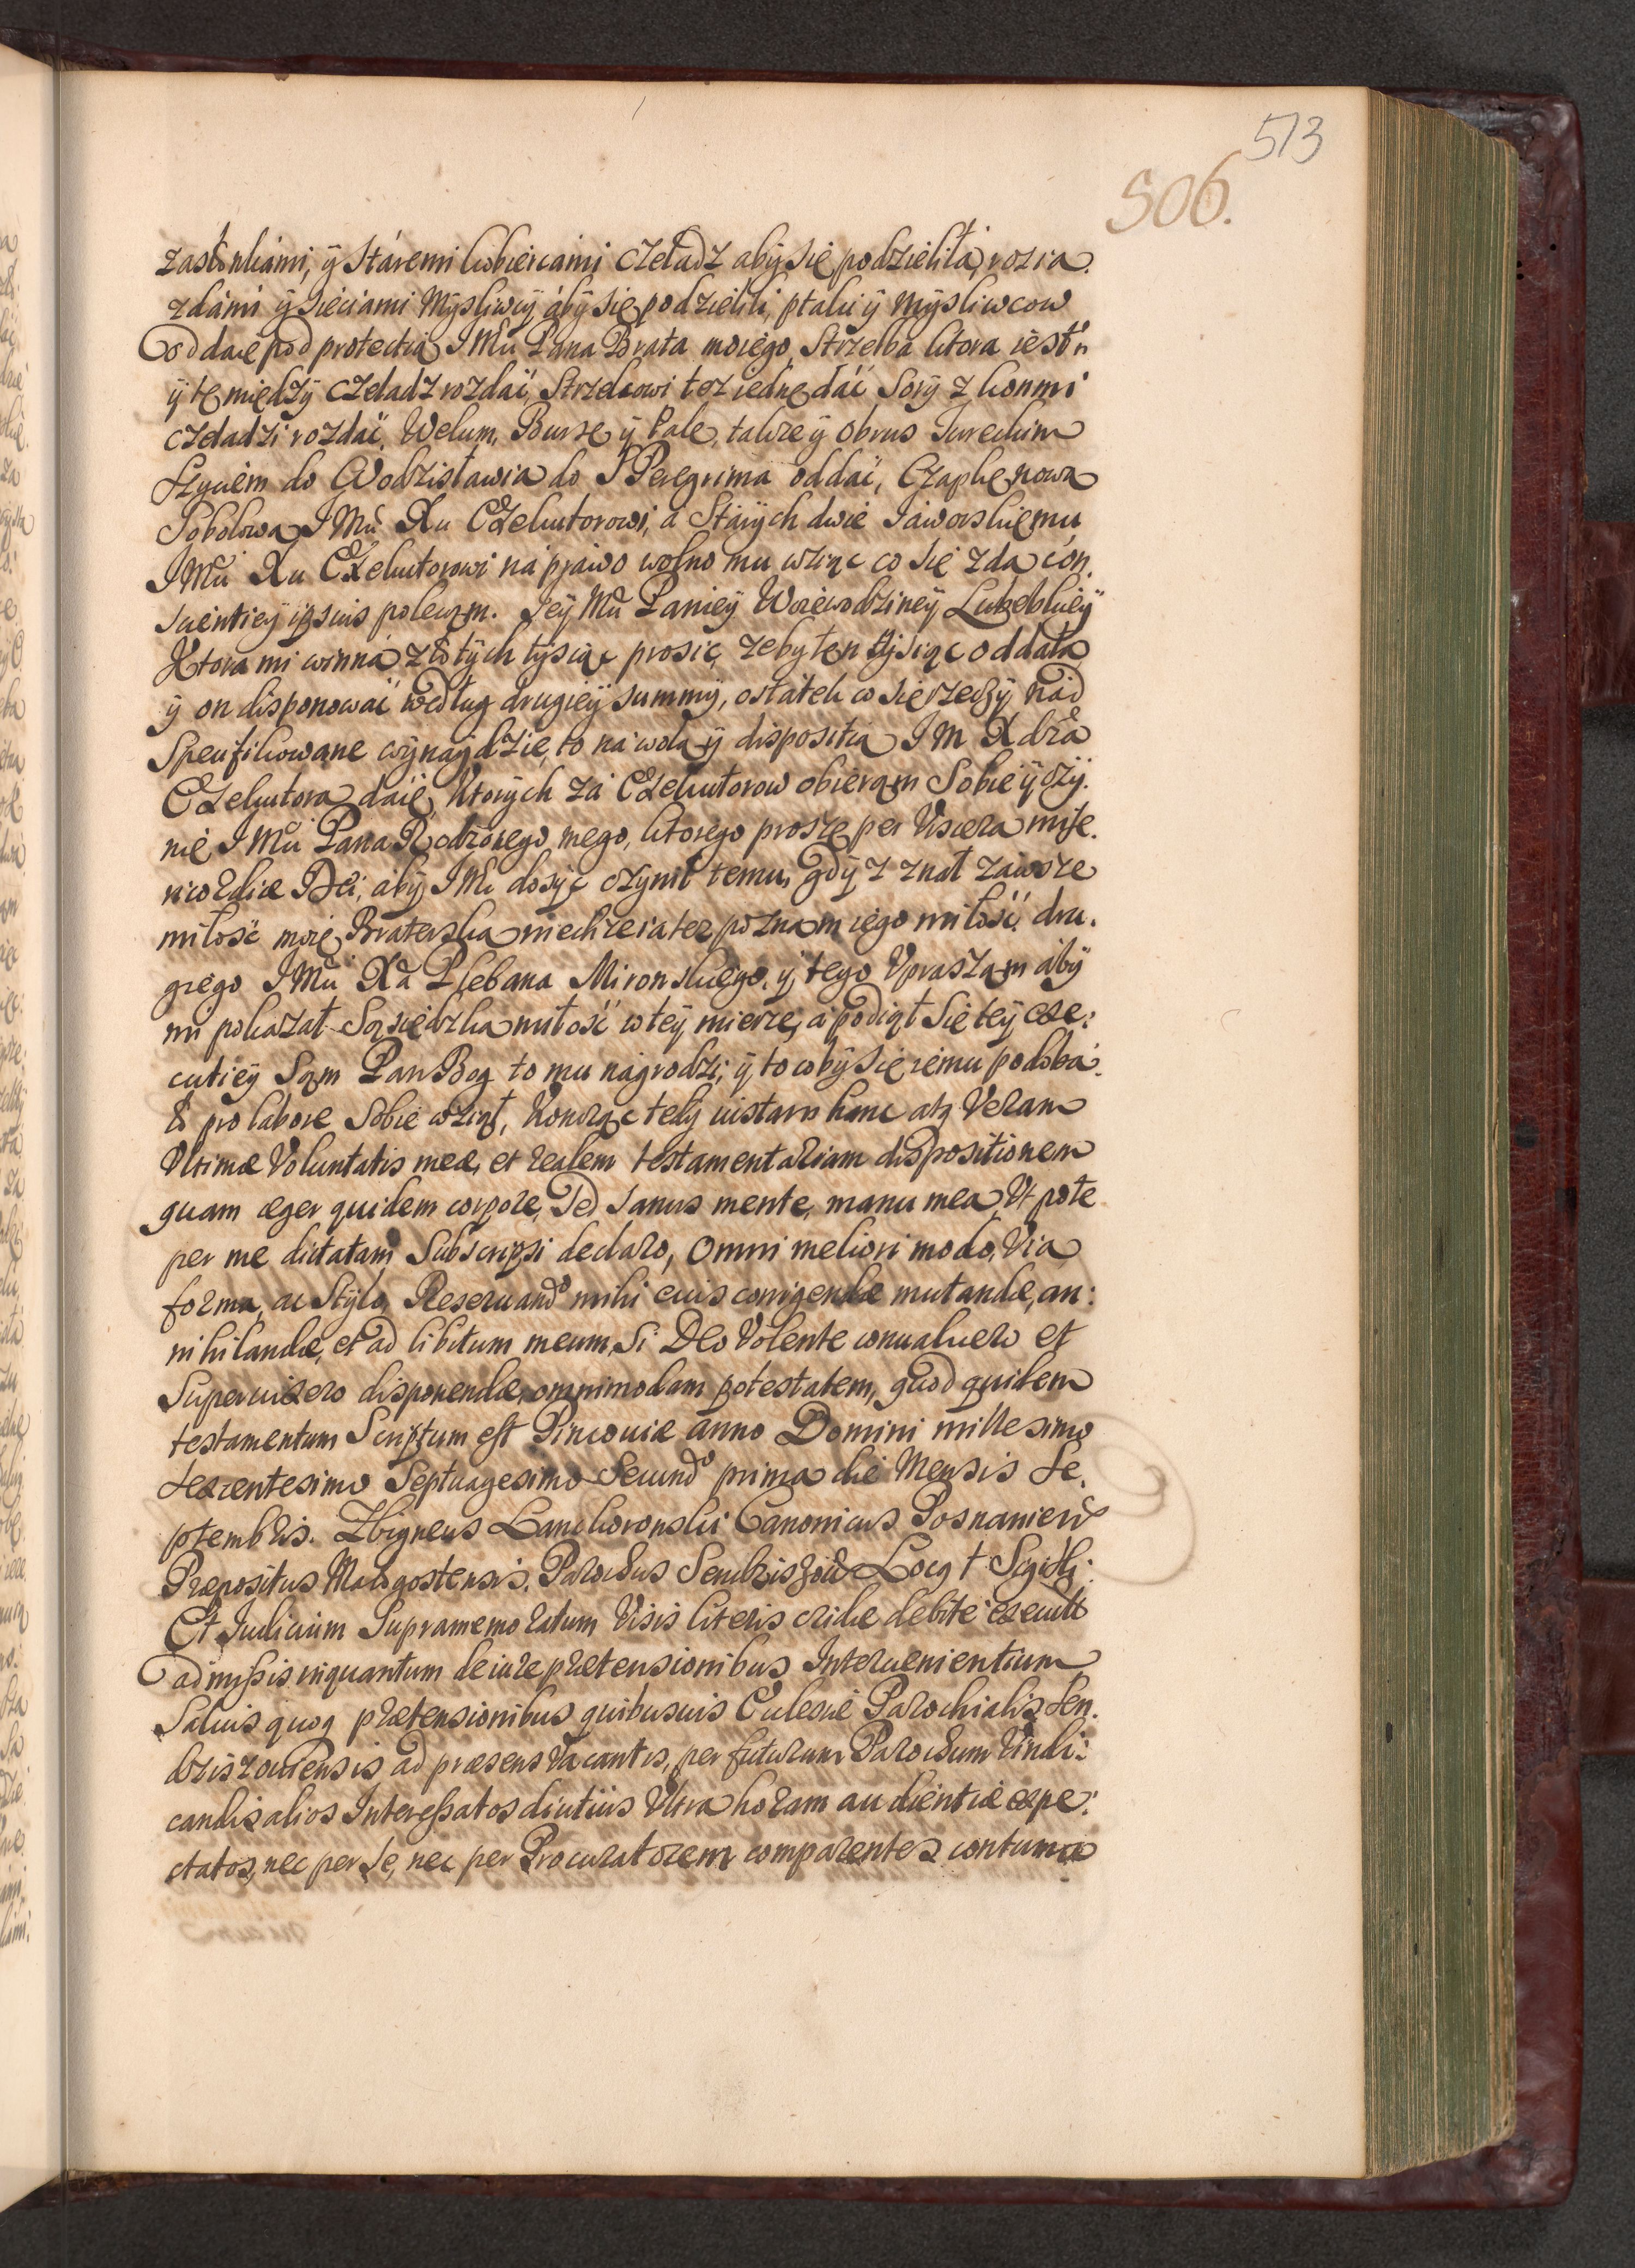 513
506.
zasłonkámi, ÿ Stáremi kobiercami czeladz abÿ się podzieliła, rozia.
zdámi ÿ sieciami Mÿsliwcÿ ábÿ się podzielili, ptaki ÿ Mÿsliwcow
Oddaię pod protectią JMci Pana Brata moiego, Strzelba ktora iest
ÿ tę miedzÿ czeladz rozdáć, Strzelcowi tez iednę dáć Sorÿ z konmi
czeladzi rozdáć, Welum, Bursę ÿ Palę, takze ÿ Obrus Tureckim
Szyciem do Wodzisławia do S Peregrina oddáć, Czapkę nową
Sobolową JMci Xu Exekutorowi, á Stárÿch dwie Jáworskiemu
JMci Xu Exekutorowi ná prawo wolno mu wziąc co się zda con.
scientieÿ ipsius polecam. Jeÿ Mci Panieÿ Woiewodzineÿ Lubelskieÿ
Ktora mi winná złotÿch tÿsiąc proszę, zebÿ ten tÿsiąc oddała
ÿ on disponowáć według drugieÿ summÿ, ostátek co się rzeczÿ nád
Specifikowane wÿnaÿdzie, to ná wolą ÿ dispositią JM Xdza
Exekutora dáię, Ktorÿch zá Exekutorow obieram Sobie ÿ czÿ.
nię JMci Pana Rodzonego mego, ktorego proszę per Viscera mise.
ricordiæ Dei, abÿ JMć dosÿc czÿnił temu, gdÿz znał záwsze
miłość moię Braterską niechze ia tez poznam iego miłość, dru.
giego JMci Xa Plebana Mironskiego, ÿ tego Vpraszam ábÿ
mi pokazał Sąsiedzką miłość w teÿ mierze, á podiął się teÿ exe:
cutieÿ Sam Pan Bog to mu nágrodzi, ÿ to cobÿ się iemu podobá.
ło pro labore Sobie wziął, Koncząc tedÿ iustam hanc atq Veram
Vltimæ Voluntatis meæ, et realem testamentariam dispositionem
quam æger quidem corpore, Sed Sanus mente, manu mea, Vt pote
per me dictatam Subscripsi declaro, Omni meliori modo, Via
forma, ac Stÿlo, Reseruando mihi eius corrigendæ mutandæ, an:
nihilandæ, et ad libitum meum, Si Deo Volente conualuero et
Superuixero disponendæ, omnimodam potestatem, quod quidem
testamentum Scriptum est Pinczouiæ anno Domini millesimo
sexcentesimo Septuagesimo Secundo prima die Mensis Se.
ptembris. Zbigneus Lanckoronski Canonicus Posnanien
Præpositus Małogostensis, Parochus Sendziszouien Locq † Sigilli:
Et Iudicium Supramemoratum Visis literis cridæ debitè executis
admissis inquantum de iure prætensionibus Interuenientium
Saluis quoq prætensionibus quibusuis Ecclesiæ Parochialis Sen.
dziszouiensis ad præsens Vacantis, per futurum Parochum Vindi:
candis alios Interessatos diutius Vltra horam audientiæ expe:
ctatos, nec per Se, nec per Procuratorem comparentes contuma